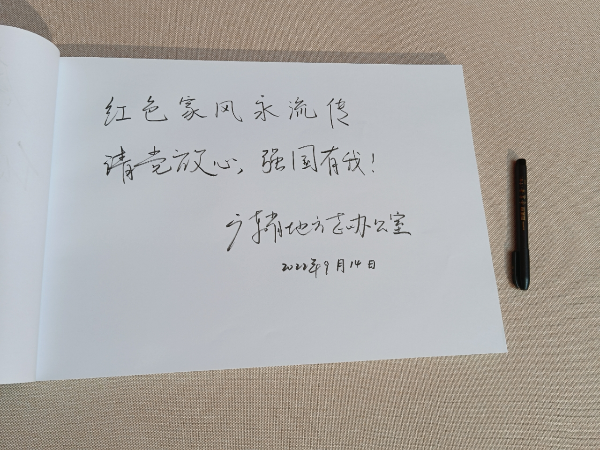 红色家风永流传
请党放心，强国有我！
广东省地方志办公室
2022年9月14日